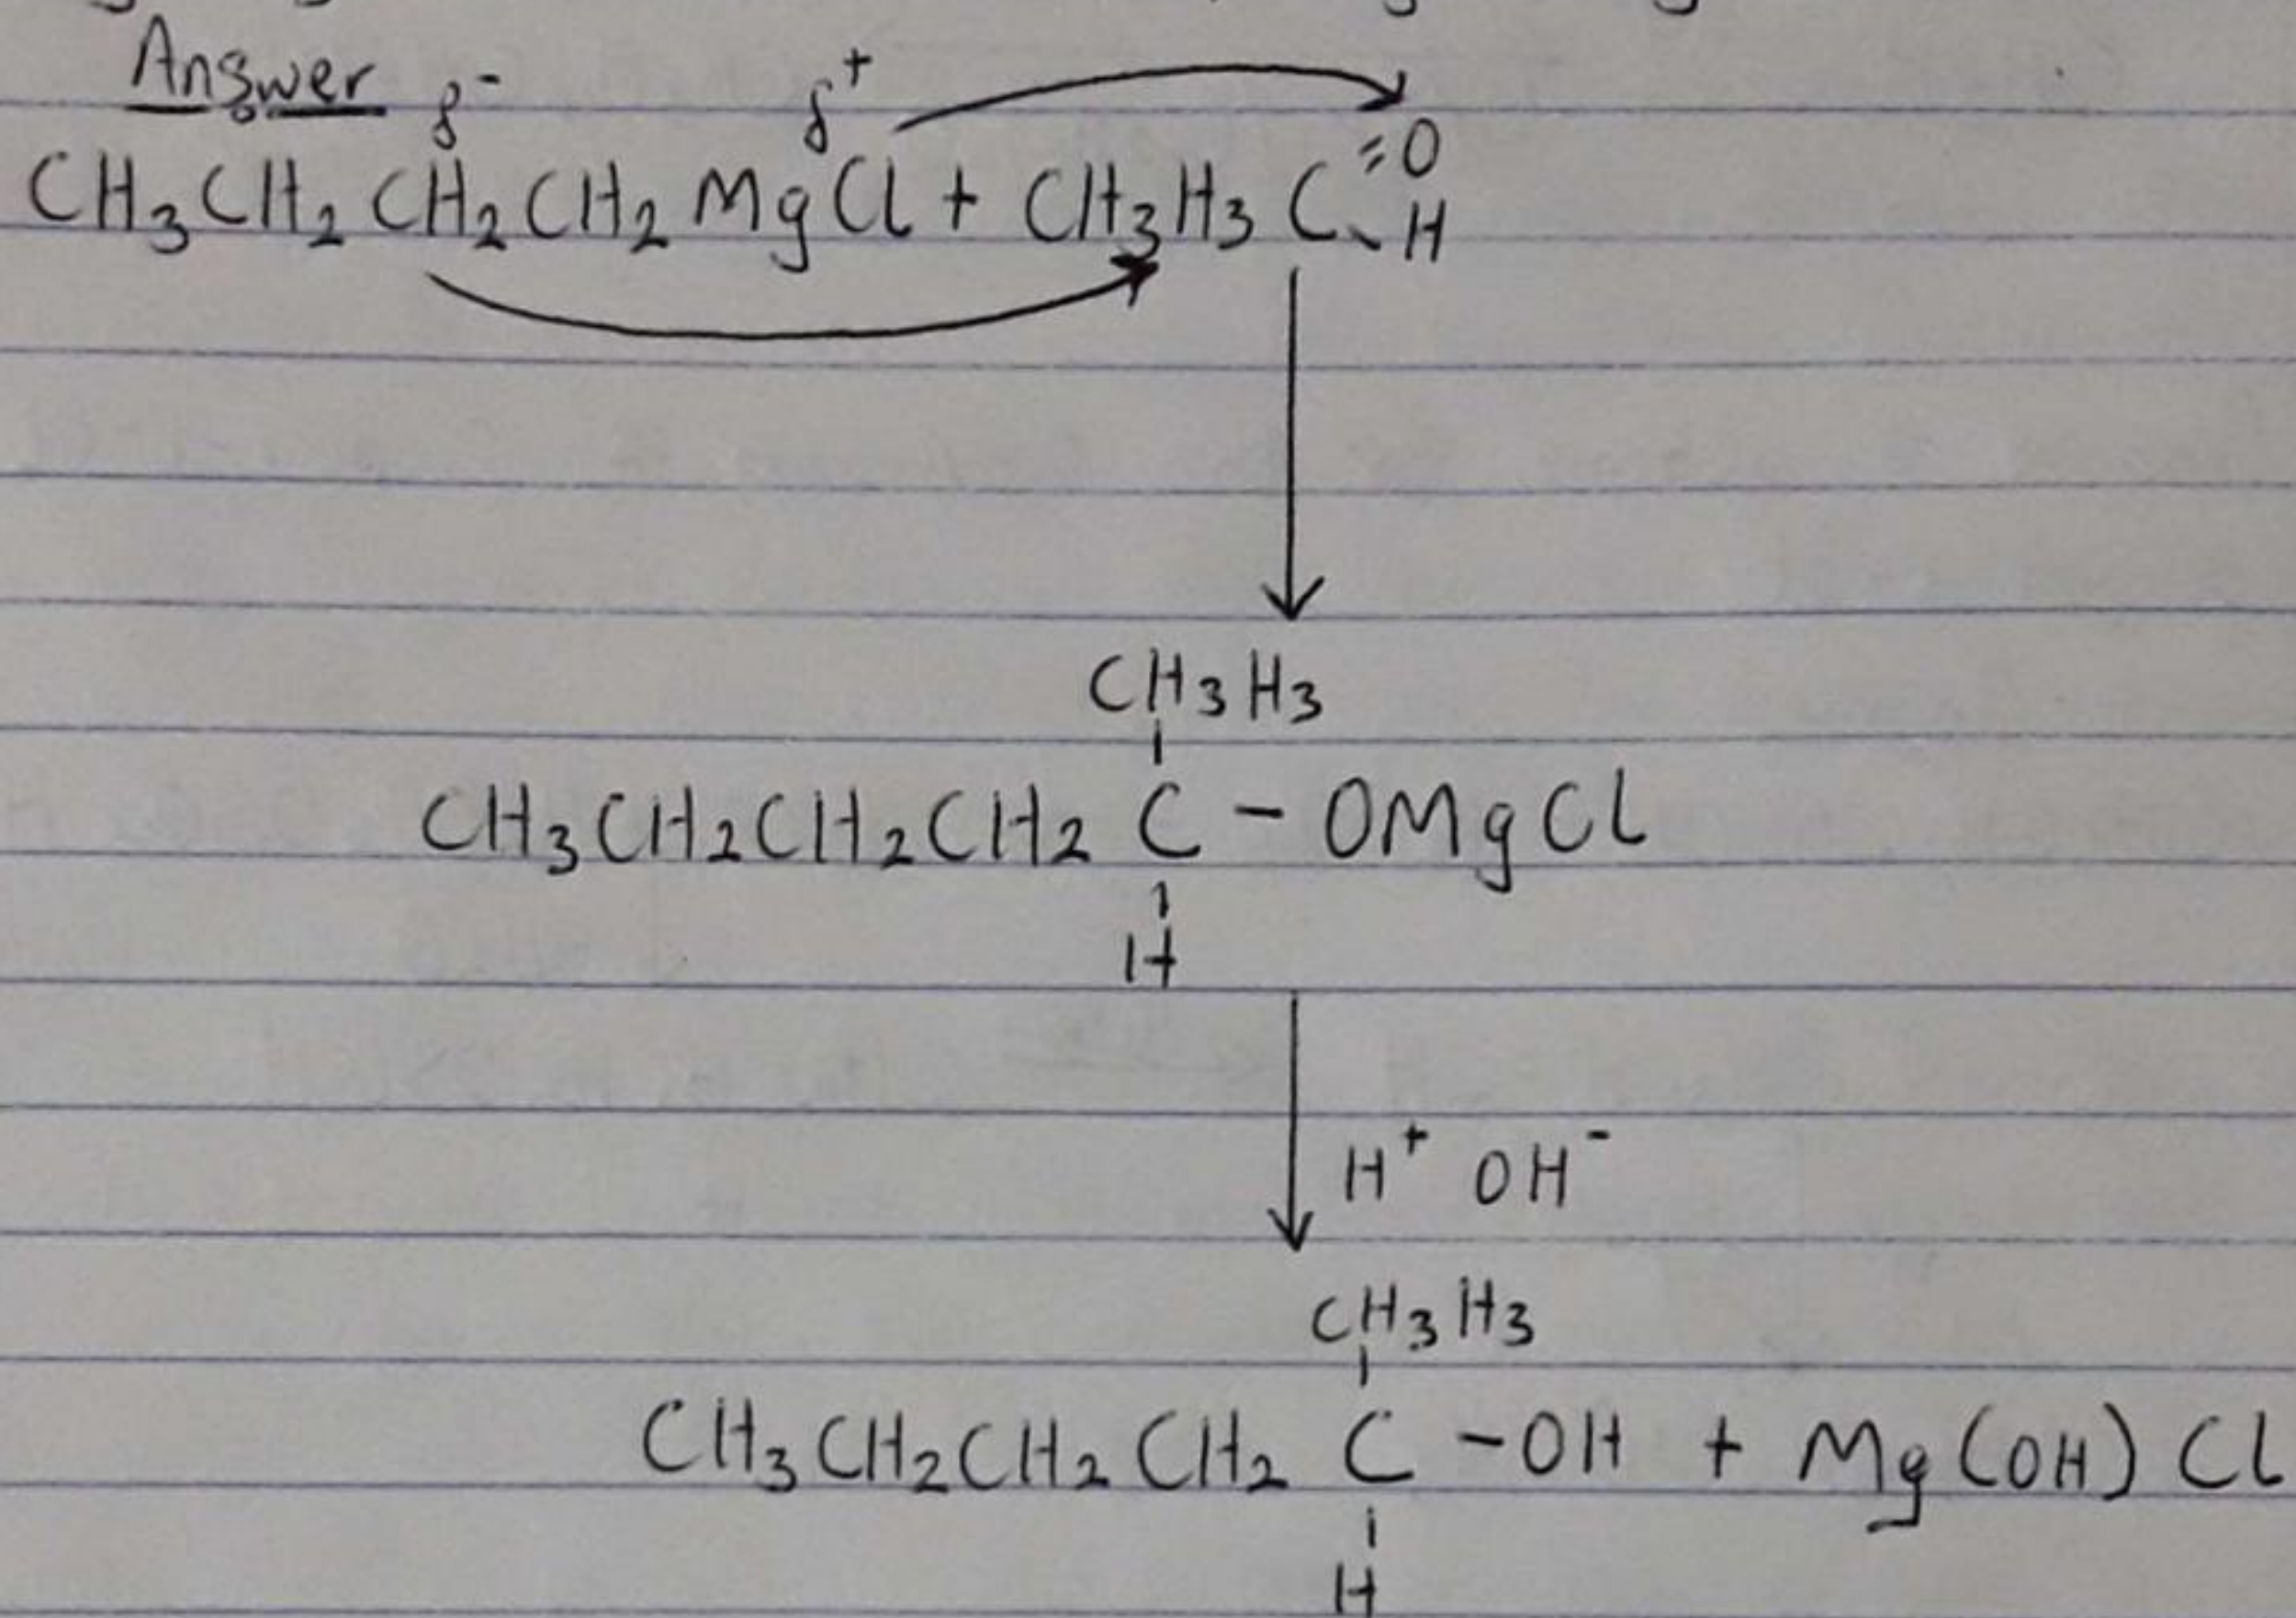 Answer
δ- δ+
CH3CH2CH2CH2MgCl + CH3H3C=O
-H
CH3H3
CH3CH2CH2CH2C-OMgCl
H
H+ OH-
CH3H3
CH3CH2CH2CH2C-OH + Mg(OH)Cl
H